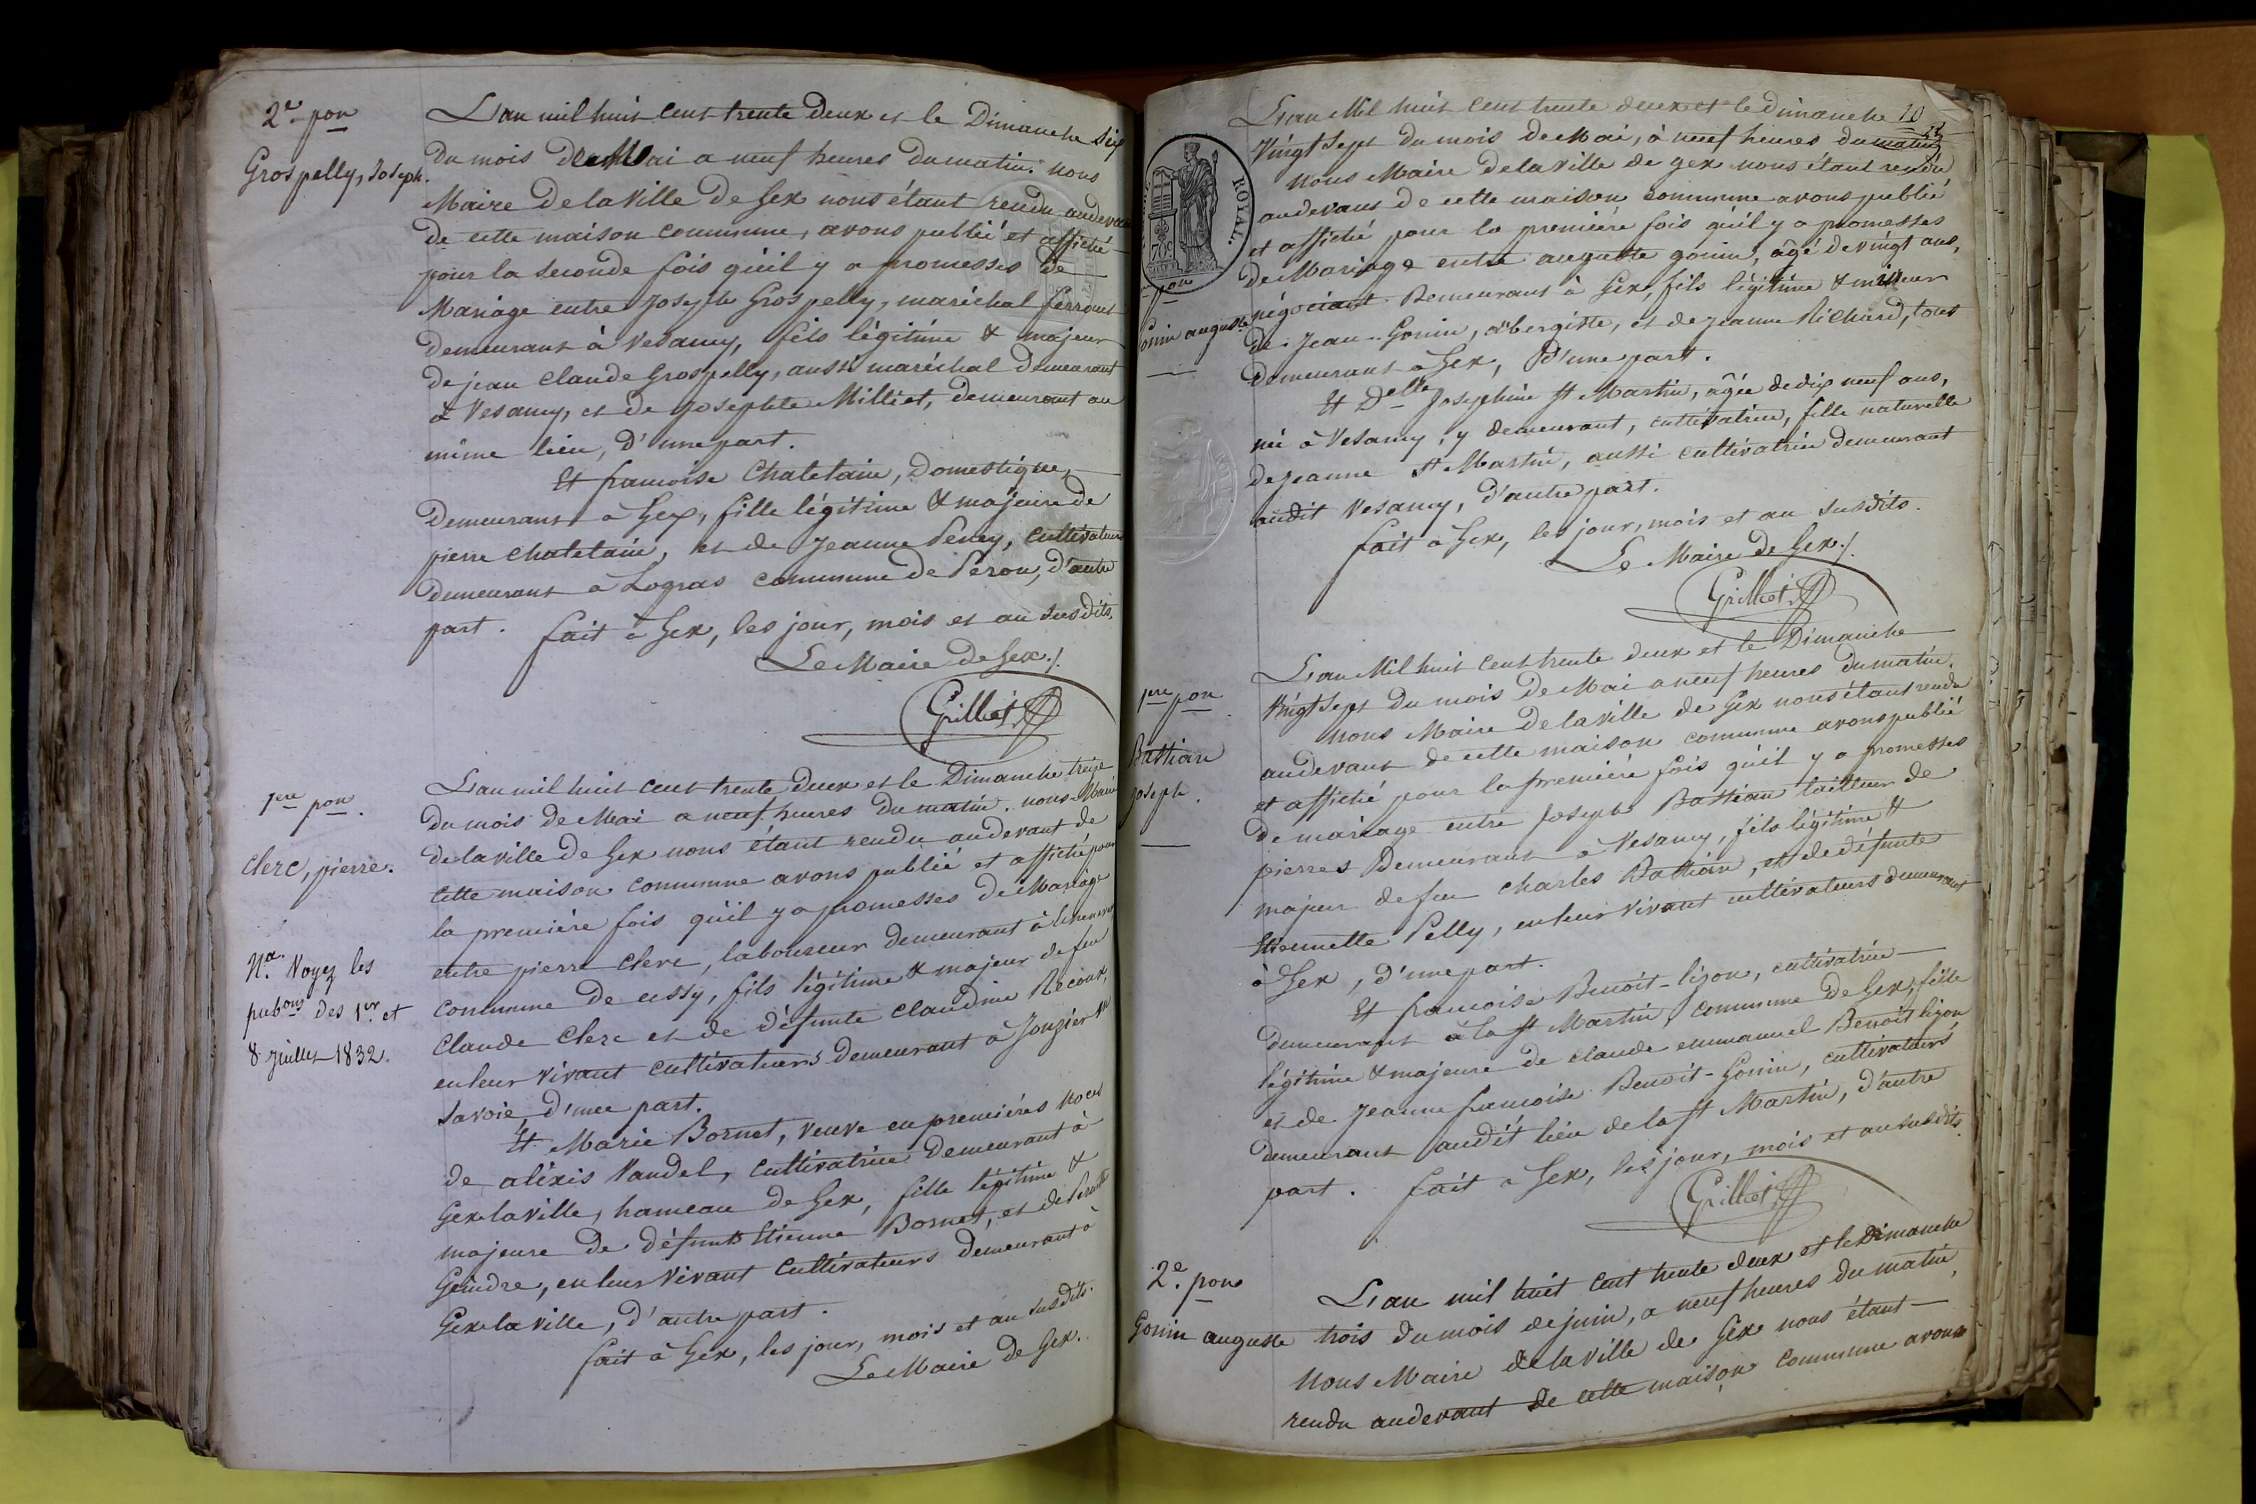 2e pon
Grospelly, Joseph.
L'an mil huit cent trente deux et le Dimanche six
du mois de Mai a neuf heures du matin. nous
Maire de la Ville de Gex nous étant rendu au devant
de cette maison commune, avons publié et affiché
pour la seconde fois qu'il y a promesses de
Mariage entre Joseph Grospelly, maréchal ferrant
demeurant à Vesancy, fils légitime & majeur
de jean claude Grospelly, aussi maréchal demeurant
à Vesancy, et de Josephte Milliet, demeurant au
même lieu, d'une part.
Et francoise Chatelain, Domestique,
demeurant à Gex, fille légitime & majeure de
pierre chatelain, et de Jeanne Pency, cultivateurs
demeurant à Logras commune de Peron, d'autre
part. fait à Gex, les jour, mois et an susdits.
Le Maire de Gex ./.
Grilliet
1ere pon.
Clerc, pierre.
Na. Voyez les
pubons des 1er et
8 Juillet 1832.
L'an mil huit cent trente deux et le Dimanche treize
du mois de Mai a neuf heures du matin. nous Maire
de la ville de Gex nous étant rendu au devant de
cette maison commune avons publié et affiché pour
la première fois qu'il y a promesses de Mariage
entre pierre Clerc, laboureur demeurant à
commune de cessy, fils légitime & majeur de feu
Claude Clerc et de défunte claudine Recoux,
en leur vivant cultivateurs demeurant à Jonzier en
Savoie, d'une part.
Et Marie Bornet, veuve en premières noces
de alexis Vandel, cultivatrice demeurant à
Gex la ville, hameau de Gex, fille légitime &
majeure de défunts Etienne Bornet, et de
Geindre, en leur vivant cultivateurs demeurant à
Gex la ville, d'autre part.
fait à Gex, les jour, mois et an susdits.
Le Maire de Gex.
10
ROYAL.
pon
Gonin auguste
L'an Mil huit cent trente deux et le dimanche
Vingt sept du mois de Mai, à neuf heures du matin
nous Maire de la Ville de gex nous étant rendu
au devant de cette maison commune avons publié
et affiché pour la première fois qu'il y a promesses
de Mariage entre auguste gonin, âgé de vingt ans,
négociant demeurant à Gex, fils légitime & mineur
de Jean Gonin, aubergiste, et de jeanne Richard, tous
demeurant à Gex, d'une part.
Et Delle Josephine St Martin, âgée de dix neuf ans,
née à Vesancy, y demeurant, cultivatrice, fille naturelle
de jeanne St Martin, aussi cultivatrice demeurant
audit Vesancy, d'autre part.
fait à Gex, les jour, mois et an susdits.
Le Maire de Gex ./.
Grilliet
1ere pon
Bastian
Joseph.
L'an Mil huit cent trente deux et le Dimanche
Vingt sept du mois de Mai a neuf heures du matin.
nous Maire de la ville de Gex nous étant rendu
au devant de cette maison commune avons publié
et affiché pour la première fois qu'il y a promesses
de mariage entre Joseph Bastian tailleur de
pierres demeurant à Vesancy, fils légitime &
majeur de feu Charles Bastian, et de défunte
Etiennette Pelly, en leur vivant cultivateurs demeurant
à Gex, d'une part.
Et francoise Benoit-lizon, cultivatrice
demeurant à la St Martin, commune de Gex, fille
légitime & majeure de claude emmanuel Benoit lizon
et de Jeanne francoise Benoit-Gonin, cultivateurs
demeurant audit lieu de la St Martin, d'autre
part. fait à Gex, les jour, mois et an susdits.
Grilliet
2e pon
Gonin auguste
L'an mil huit cent trente deux et le Dimanche
trois du mois de juin, a neuf heures du matin,
Nous Maire de la ville de Gex nous étant
rendu au devant de cette maison commune avons